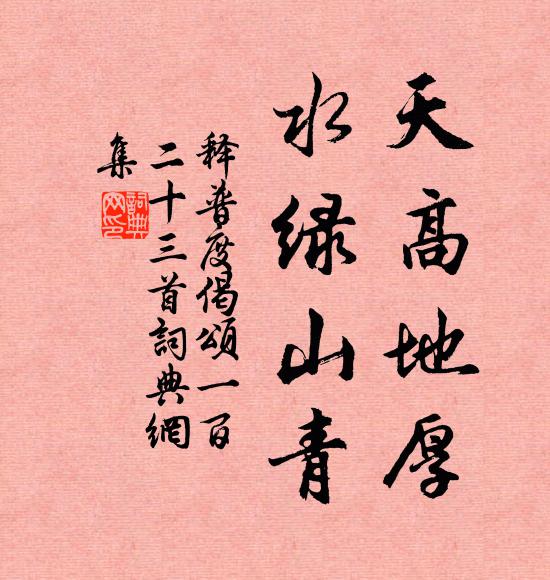 天高地厚
水绿山青
释普度偈颂一百
二十三首詞典網
集
詞典網印